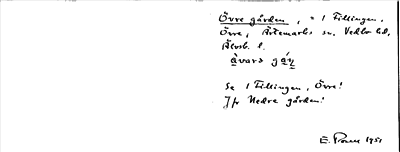 Övre gården, = 1 Fillingen,
Övre, Ärtemarks sn, Vedbo hd,
Älvsb. l.
åvarɘ gá̊ɳ
Se 1 Fillingen, Övre!
Jfr Nedre gården!
E. 1951